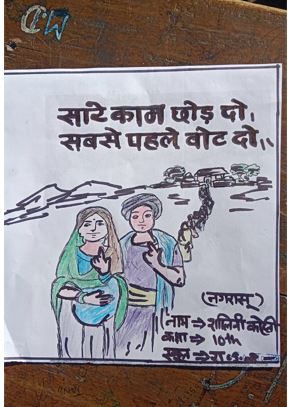 M.D
सारे काम छोड़ दो।
सबसे पहले वोट दो।।
(नगरासू)
नाम → शालिनी कोहली
कक्षा → 10th
स्कूल →